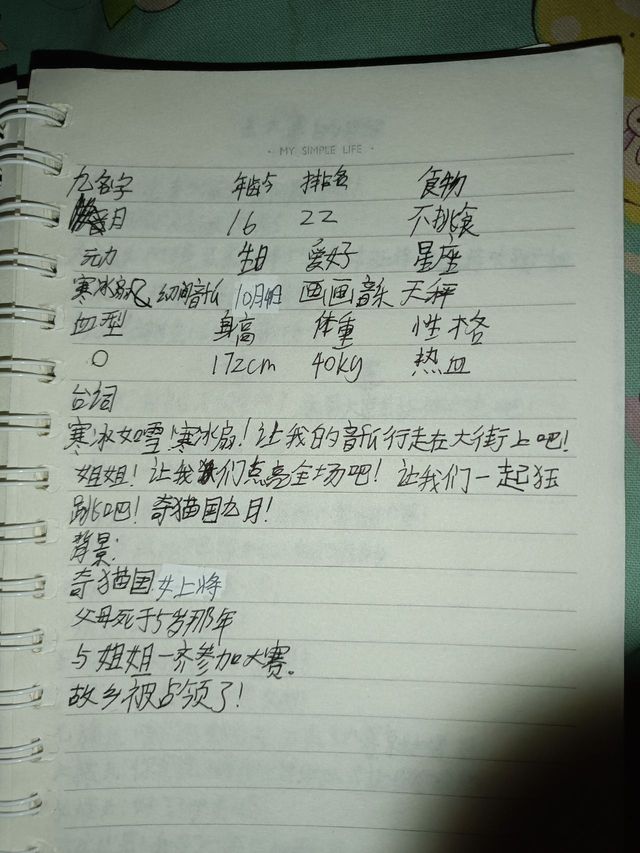 · MY SIMPLE LIFE ·
名字 年龄 排名 食物
月 16 22 不挑食
元力 生日 爱好 星座
寒冰扇 音乐 10月 画画音乐 天秤
血型 身高 体重 性格
O 172cm 40kg 热血
台词
寒冰如雪!寒冰扇!让我的音乐行走在大街上吧!
姐姐!让我们点亮全场吧!让我们一起狂
跳吧!奇猫国九月!
背景:
奇猫国女上将
父母死于5岁那年
与姐姐一齐参加大赛。
故乡被占领了!